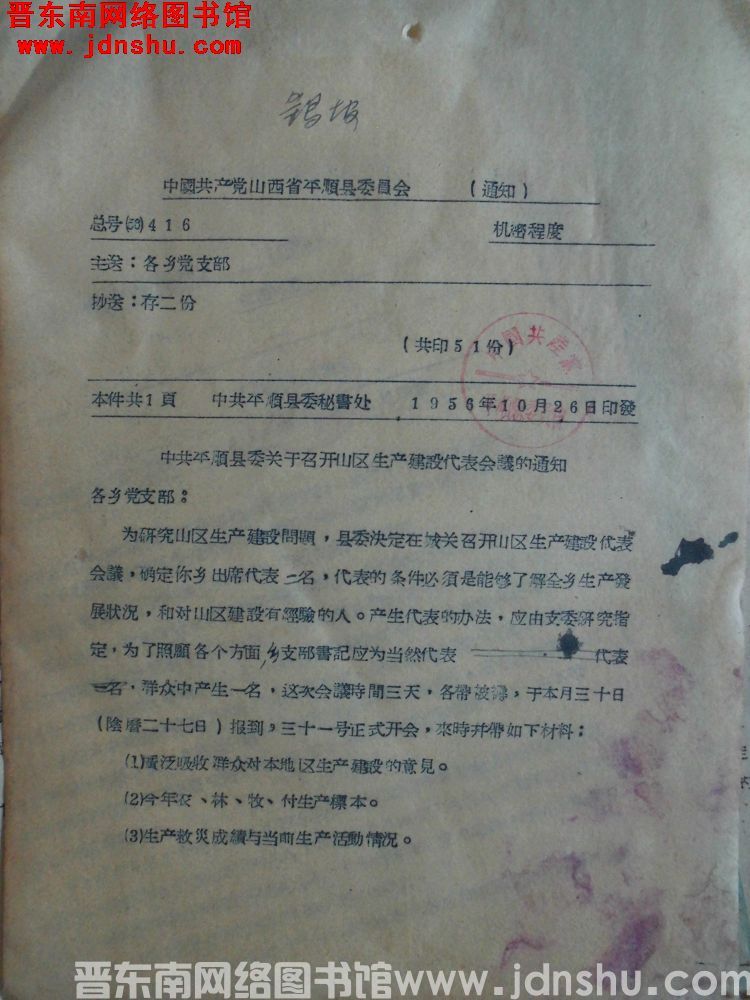 晋东南网络图书馆
www.jdnshu.com
中國共产党山西省平順县委員会 (通知)
总号(56)416 机密程度
主送:各乡党支部
抄送:存二份
(共印51份)
中國共產黨
本件共1頁 中共平順县委秘書处 1956年10月26日印發
中共平順县委关于召开山区生产建設代表会議的通知
各乡党支部:
为研究山区生产建設問題,县委决定在城关召开山区生产建設代表
会議,确定你乡出席代表二名,代表的条件必須是能够了解全乡生产發
展狀况,和对山区建設有經驗的人。产生代表的办法,应由支委研究指
定,为了照顧各个方面,乡支部書記应为当然代表 代表
一名,群众中产生一名,这次会議時間三天,各帶被褥,于本月三十日
(陰曆二十七日)报到,三十一号正式开会,來時幷帶如下材料:
(1)廣泛吸收群众对本地区生产建設的意見。
(2)今年农、林、牧、付生产標本。
(3)生产救災成績与当前生产活動情況。
晋东南网络图书馆www.jdnshu.com